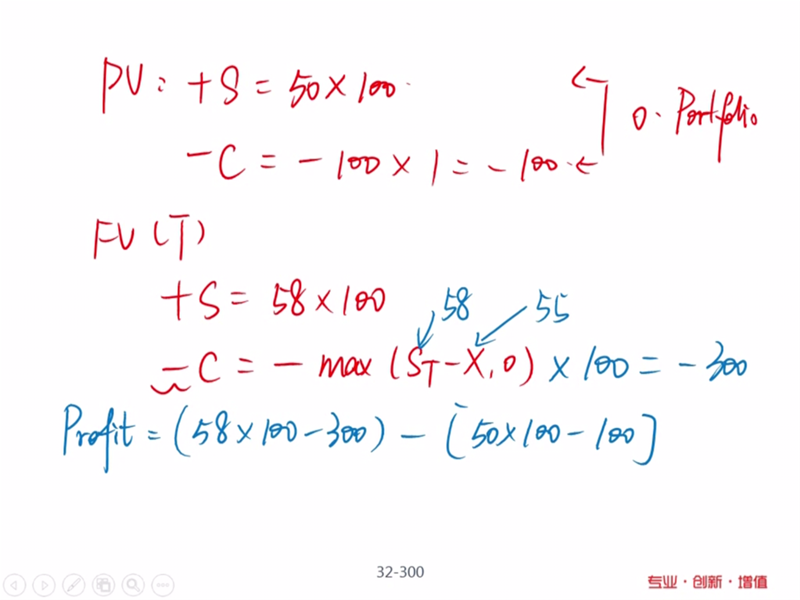 PV: +S = 50×100
-C = -100×1 = -100
0. Portfolio
FV(T)
+S = 58×100
58
55
-C = -max(S_T-X,0)×100 = -300
Profit = (58×100-300)-[50×100-100]
32-300
专业·创新·增值